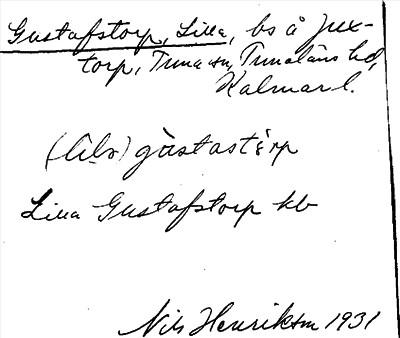 Gustafstorp, Lilla, bs å Jux-
torp, Tuna sn, Tunaläns hd,
Kalmar l.
(lila) gùstastórp
Lilla Gustafstorp kb
Nils Henrikson 1931